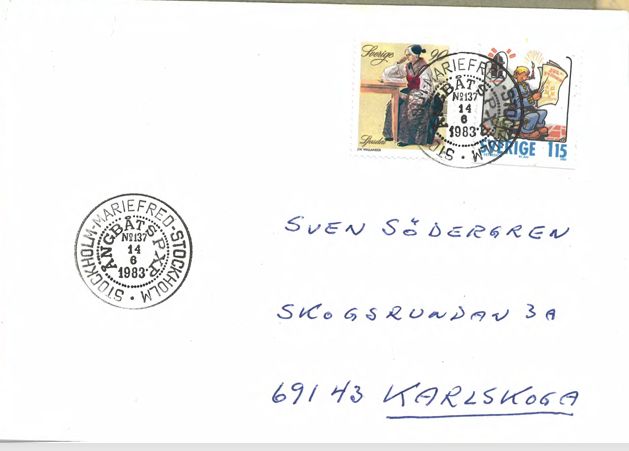 Sverige 90
SVERIGE 115
STOCKHOLM-MARIEFRED-STOCKHOLM
ÅNGBÅTS PXP
No 137
14
6
1983
STOCKHOLM-MARIEFRED-STOCKHOLM
ÅNGBÅTS PXP
No 137
14
6
1983
SVEN SÖDERGREN
SKOGSRUNDAN 3A
691 43 KARLSKOGA